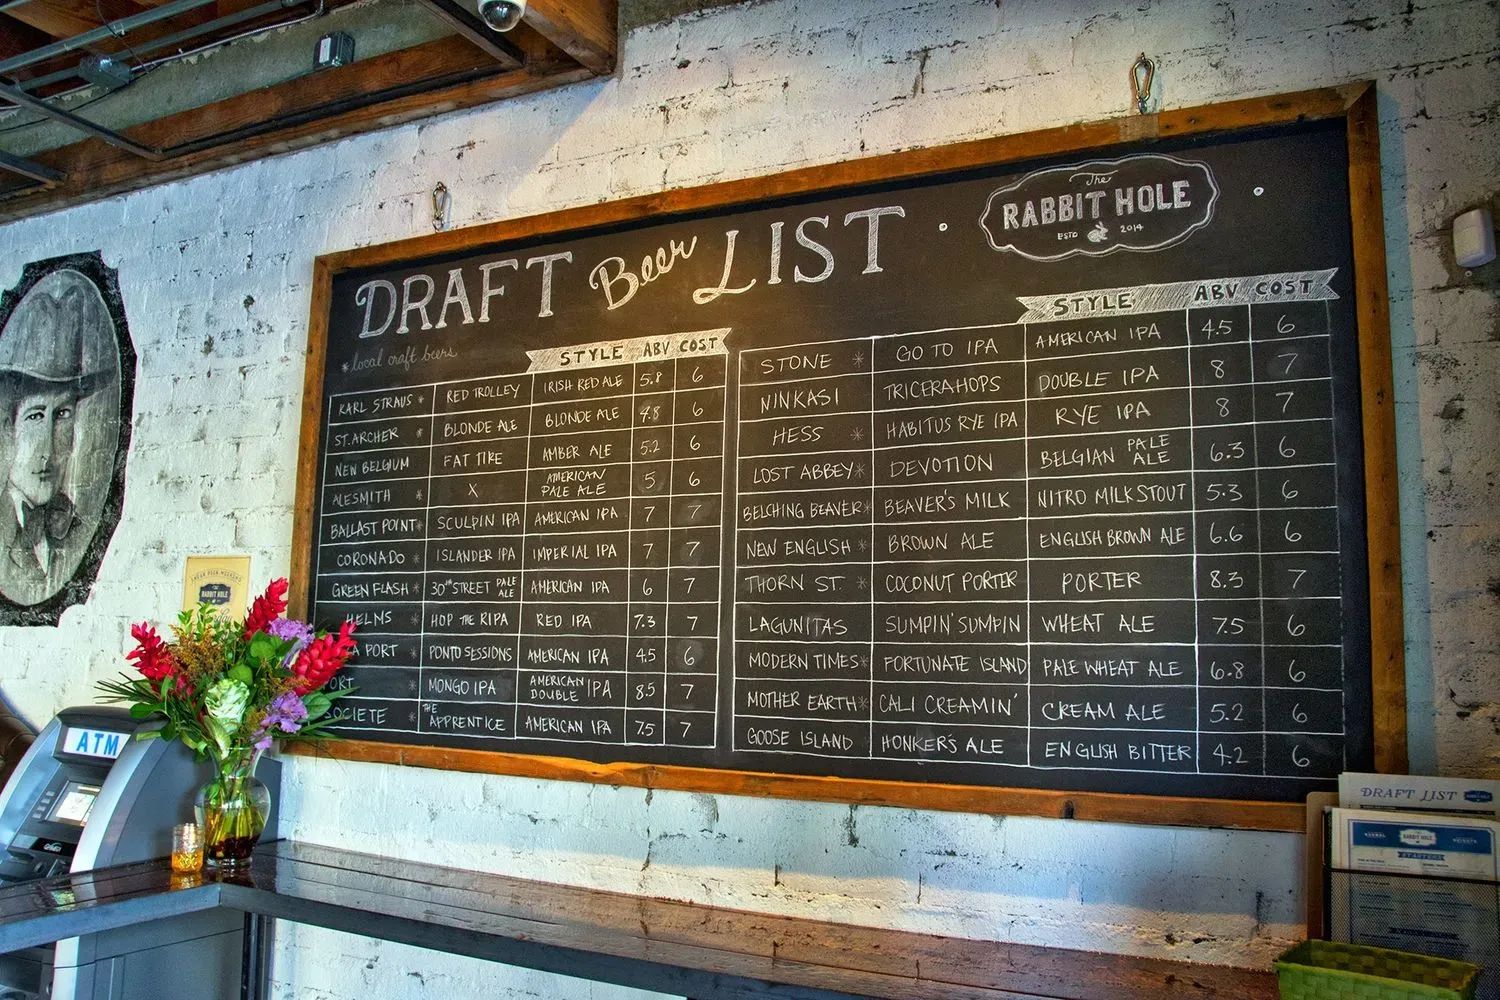 DRAFT Beer LIST
The
RABBIT HOLE
ESTD 2014
*local craft beers
STYLE ABV COST
KARL STRAUS * RED TROLLEY IRISH RED ALE 5.8 6
ST. ARCHER * BLONDE ALE BLONDE ALE 4.8 6
NEW BELGIUM FAT TIRE AMBER ALE 5.2 6
ALESMITH * X AMERICAN PALE ALE 5 6
BALLAST POINT * SCULPIN IPA AMERICAN IPA 7 7
CORONADO * ISLANDER IPA IMPERIAL IPA 7 7
GREEN FLASH * 30TH STREET PALE ALE AMERICAN IPA 6 7
HELMS * HOP THE RIPA RED IPA 7.3 7
A PORT * PONTO SESSIONS AMERICAN IPA 4.5 6
ORT * MONGO IPA AMERICAN DOUBLE IPA 8.5 7
SOCIETE * THE APPRENTICE AMERICAN IPA 7.5 7
STYLE ABV COST
STONE * GO TO IPA AMERICAN IPA 4.5 6
NINKASI TRICERAHOPS DOUBLE IPA 8 7
HESS * HABITUS RYE IPA RYE IPA 8 7
LOST ABBEY * DEVOTION BELGIAN PALE ALE 6.3 6
BELCHING BEAVER * BEAVER'S MILK NITRO MILK STOUT 5.3 6
NEW ENGLISH * BROWN ALE ENGLISH BROWN ALE 6.6 6
THORN ST. * COCONUT PORTER PORTER 8.3 7
LAGUNITAS SUMPIN' SUMPIN WHEAT ALE 7.5 6
MODERN TIMES * FORTUNATE ISLAND PALE WHEAT ALE 6.8 6
MOTHER EARTH * CALI CREAMIN' CREAM ALE 5.2 6
GOOSE ISLAND HONKER'S ALE ENGLISH BITTER 4.2 6
ATM
RABBIT HOLE
DRAFT LIST
STARTERS